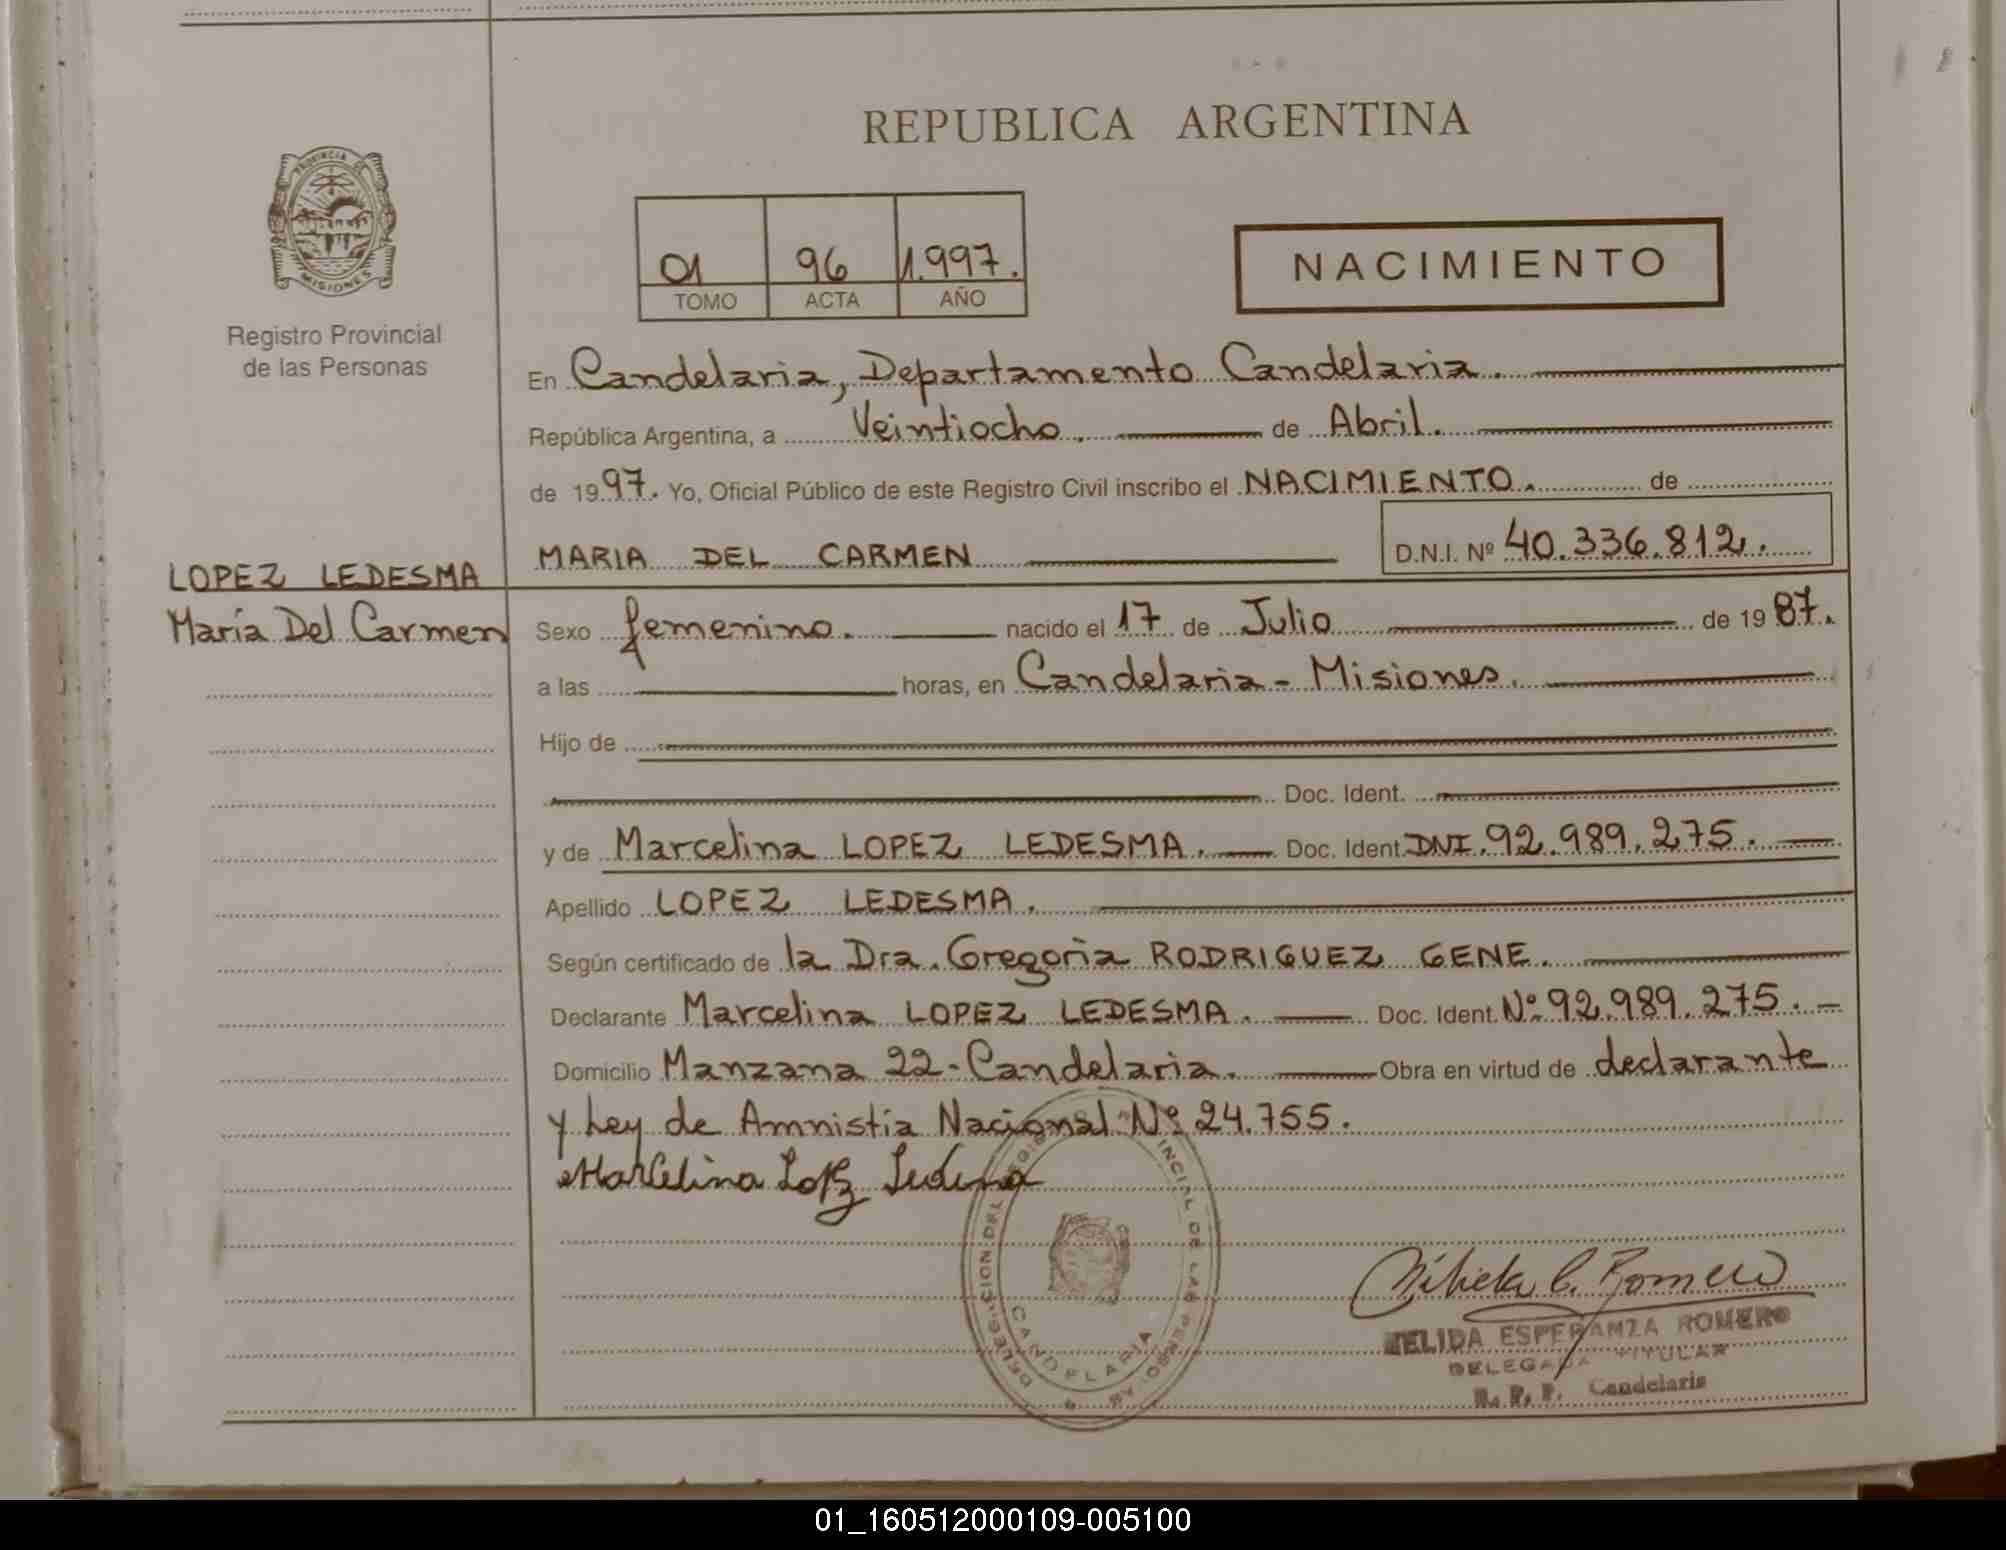 REPUBLICA ARGENTINA
PROVINCIA DE
MISIONES
Registro Provincial
de las Personas
01 96 1.997.
TOMO ACTA AÑO
NACIMIENTO
En Candelaria, Departamento Candelaria.
República Argentina, a Veintiocho. de Abril.
de 1997. Yo, Oficial Público de este Registro Civil inscribo el NACIMIENTO. de
MARIA DEL CARMEN D.N.I. Nº 40.336.812.
LOPEZ LEDESMA
María Del Carmen
Sexo femenino. nacido el 17 de Julio de 1987.
a las horas, en Candelaria - Misiones.
Hijo de
Doc. Ident.
y de Marcelina LOPEZ LEDESMA. Doc. Ident. DNI. 92.989.275.
Apellido LOPEZ LEDESMA.
Según certificado de la Dra. Gregoria RODRIGUEZ GENE.
Declarante Marcelina LOPEZ LEDESMA. Doc. Ident. Nº 92.989.275.
Domicilio Manzana 22 - Candelaria. Obra en virtud de declarante
y Ley de Amnistia Nacional Nº 24.755.
Marcelina
DELEGACION DEL PROVINCIAL DE LAS PERSONAS
CANDELARIA
Romero
NELIDA ESPERANZA ROMERO
DELEGADA TITULAR
R. P. P. Candelaria
01_160512000109-005100